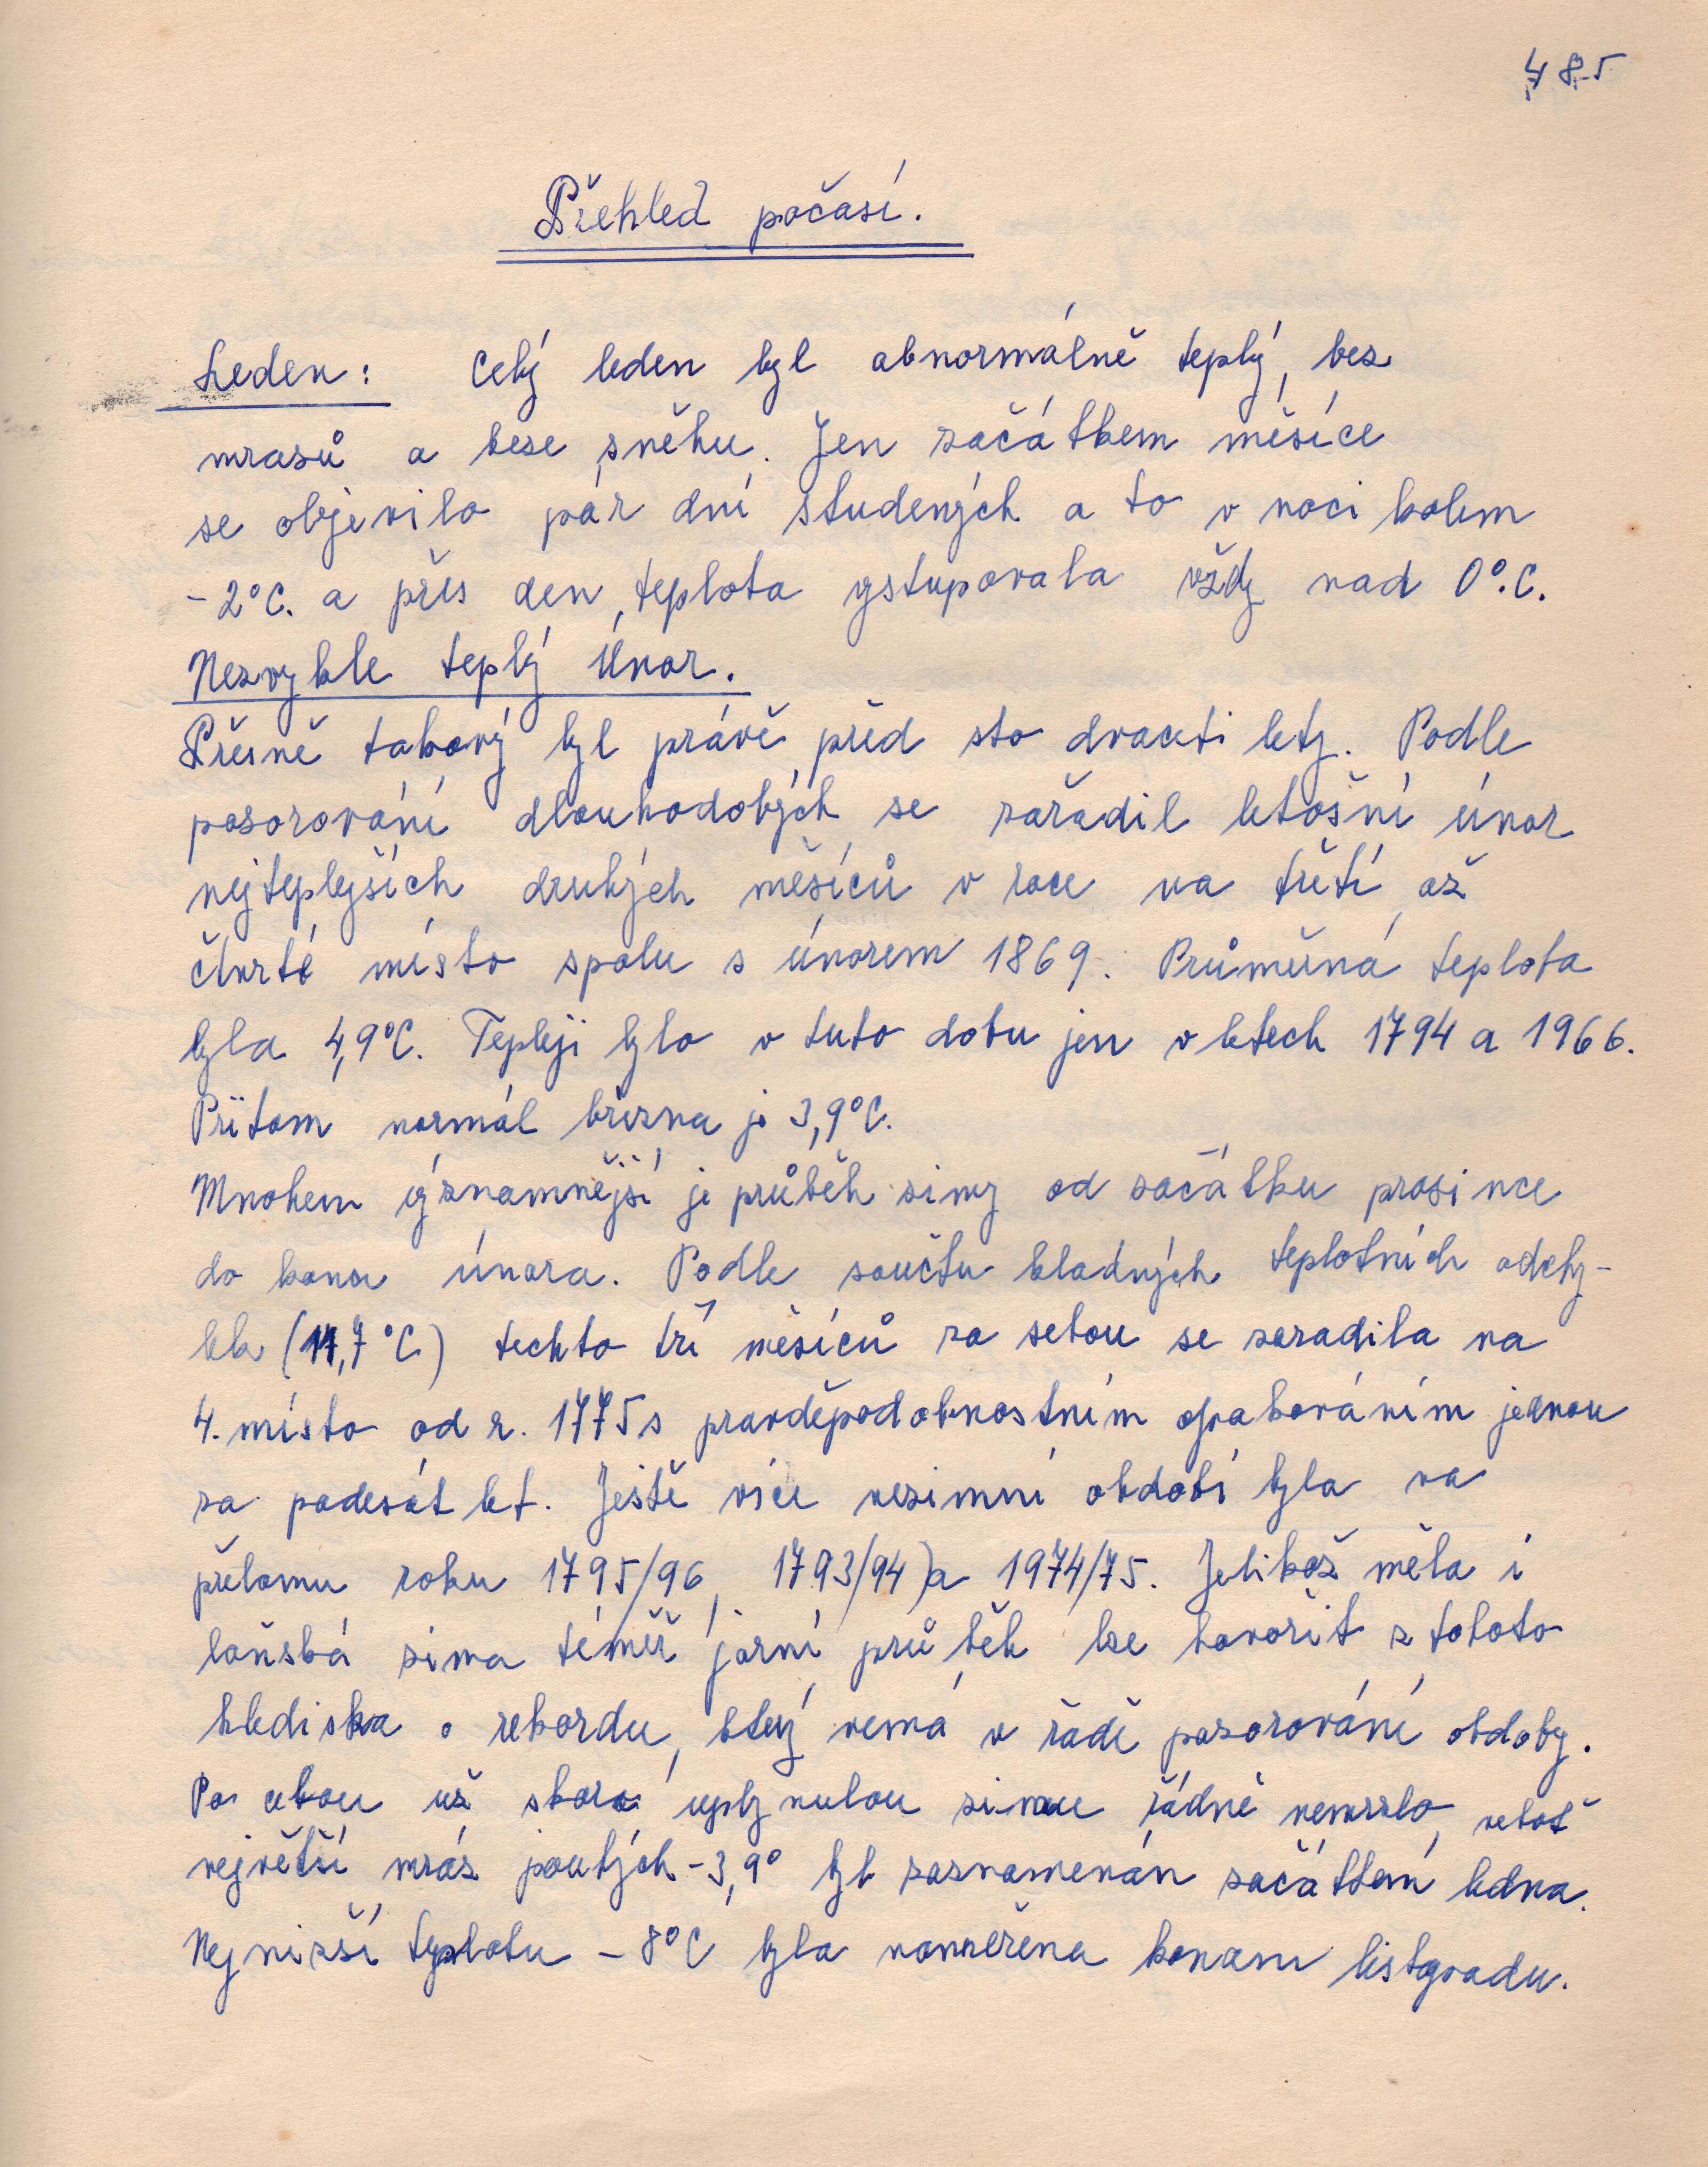 485
Přehled počasí.
Leden: Celý leden byl abnormálně teplý, bez
mrazů a beze sněhu. Jen začátkem měsíce
se objevilo pár dní studených a to v noci kolem
-2°C. a přes den teplota vystupovala vždy nad 0°.C.
Nezvykle teplý Únor.
Přesně takový byl právě před sto dvaceti lety. Podle
pozorování dlouhodobých se zařadil letošní únor
nejteplejších druhých měsíců v roce na třetí až
čtvrté místo spolu s únorem 1869. Průměrná teplota
byla 4,9°C. Tepleji bylo v tuto dobu jen v letech 1794 a 1966.
Přitom normál března je 3,9°C.
Mnohem významnější je průběh zimy od začátku prosince
do konce února. Podle součtu kladných teplotních odchy-
lek (11,7°C) techto tří měsíců za sebou se zaradila na
4. místo od r. 1775 s pravděpodobnostním opakováním jednou
za padesát let. Ještě více nezimní období byla na
přelomu roku 1795/96, 1793/94) a 1974/75. Jelikož měla i
loňská zima téměř jarní průběh lze hovořit z tohoto
hlediska o rekordu, který nemá v řadě pozorování obdoby.
Po celou už skoro uplynulou zimu řádně nemrzlo, neboť
největší mráz pouhých -3,9° byl zaznamenán začátkem ledna.
Nejnižší teplotu -8°C byla naměřena koncem listopadu.